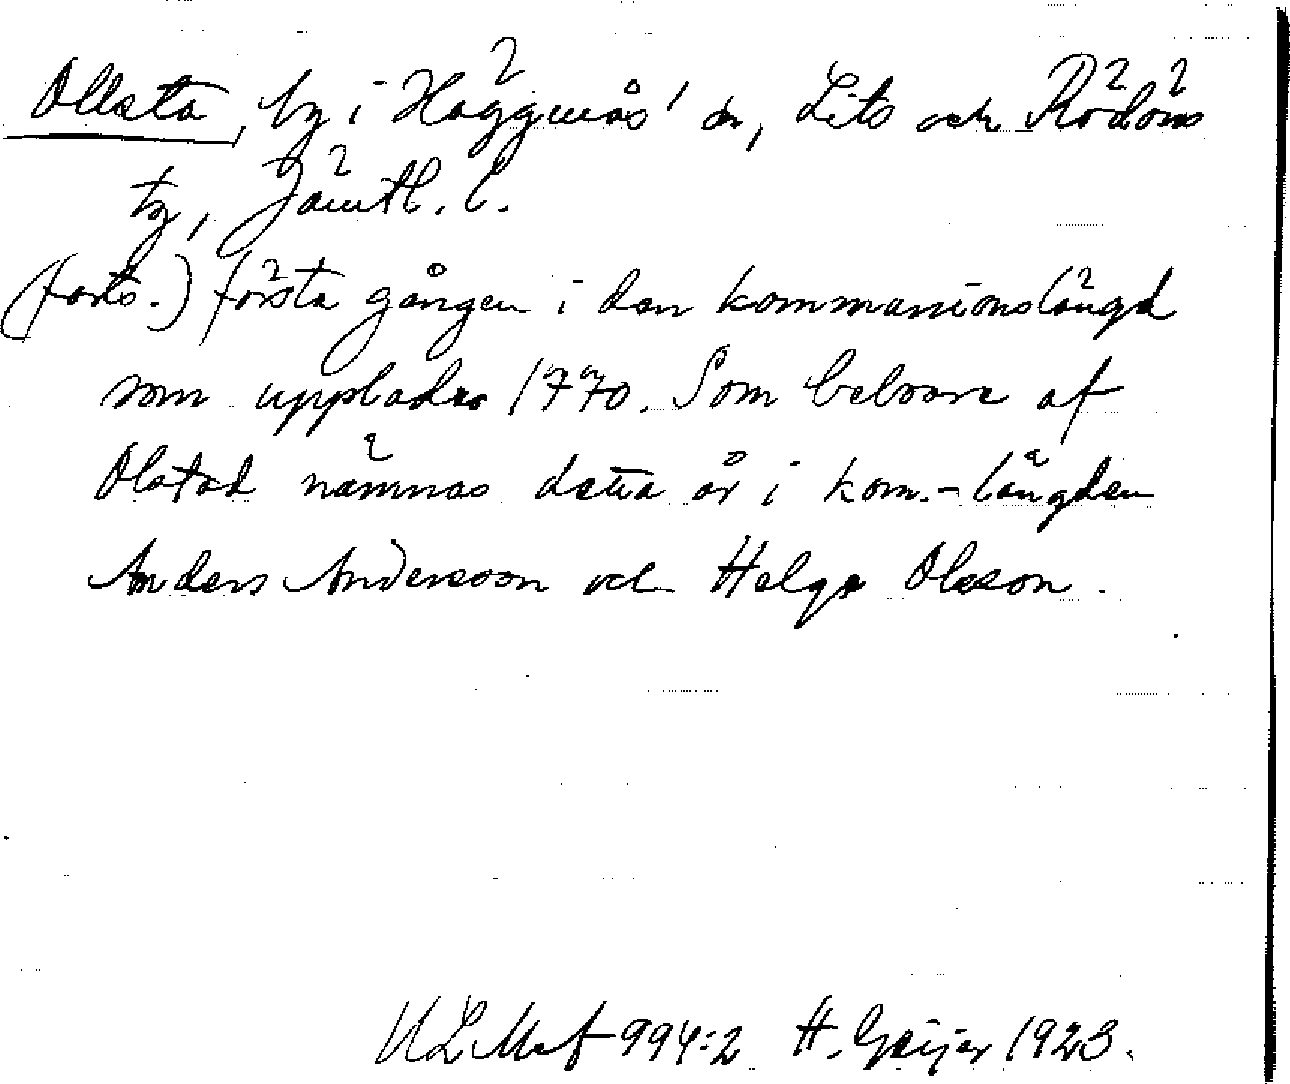 Ollsta, by i Häggenås' sn, Lits och Rödöns
tg, Jämtl. l.
(forts.) första gången i den kommunionslängd
som upplades 1770. Som beboare af
Olstad nämnas detta år i kom.-längden
Anders Andersson och Helge Olsson.
ULMA 994:2 H. Geijer 1923.